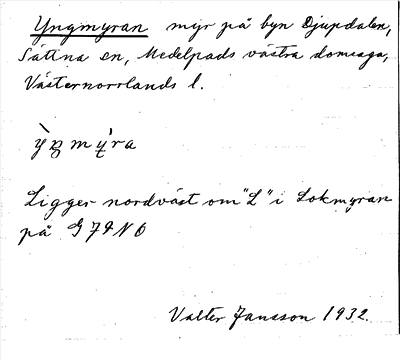 Yngmyran myr på byn Djupdalen,
Sättna sn, Medelpads västra domsaga,
Västernorrlands l.
Ligger nordväst om "L" i Lokmyran
på G 7 9 N O
Valter Jansson 1932.